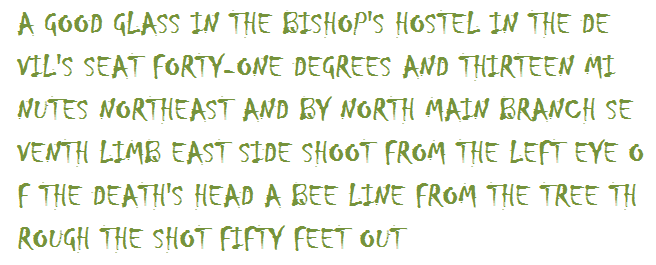 A GOOD GLASS IN THE BISHOP'S HOSTEL IN THE DE
VIL'S SEAT FORTY-ONE DEGREES AND THIRTEEN MI
NUTES NORTHEAST AND BY NORTH MAIN BRANCH SE
VENTH LIMB EAST SIDE SHOOT FROM THE LEFT EYE O
F THE DEATH'S HEAD A BEE LINE FROM THE TREE TH
ROUGH THE SHOT FIFTY FEET OUT